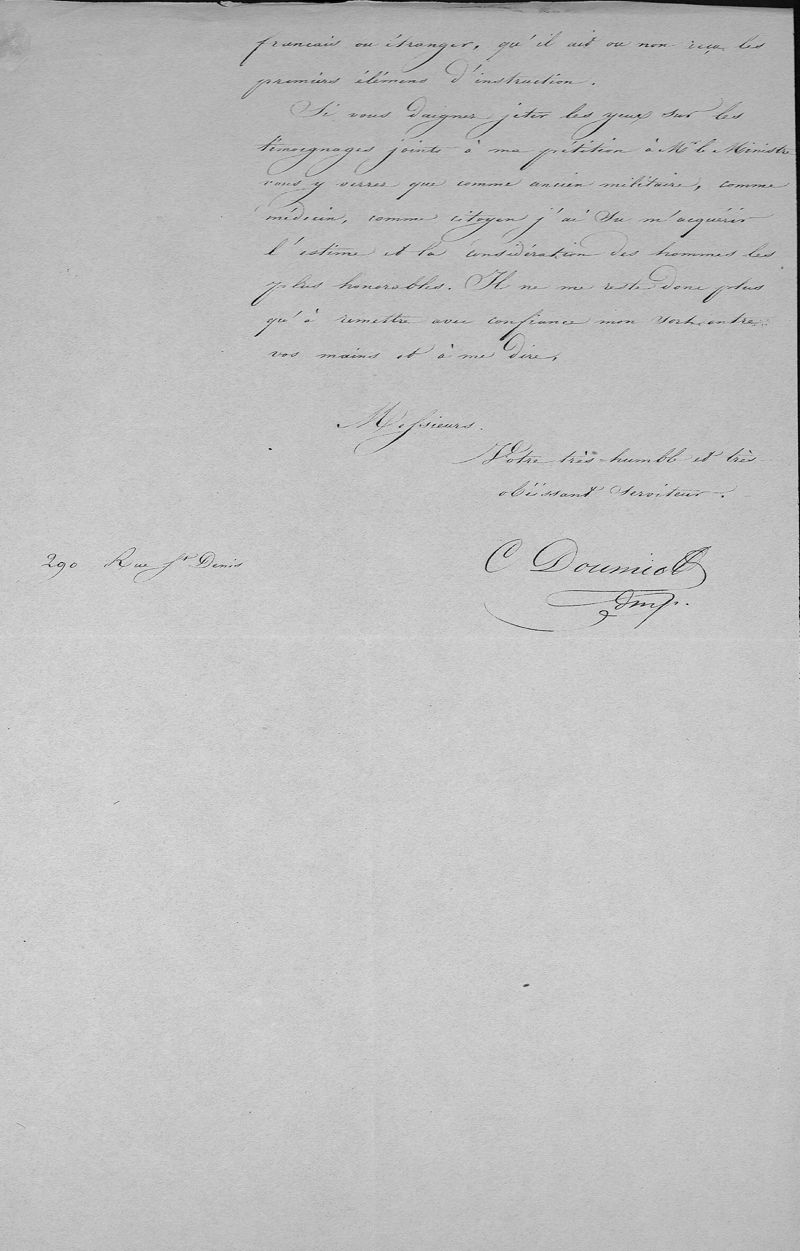 francais ou étranger, qu'il ait ou non reçu les
premiers élémens d'instruction.
Si vous daignez jeter les yeux sur les
témoignages joints à ma pétition à Mr le Ministre
vous y verrez que comme ancien militaire, comme
médecin, comme citoyen j'ai su m'acquérir
l'estime et la considération des hommes les
plus honorables. Il ne me reste donc plus
qu'à remettre avec confiance mon sort entre
vos mains et à me dire,
Messieurs.
Votre très-humble et très
obéissant serviteur.
290 Rue St Denis
C Doumic
dmp.